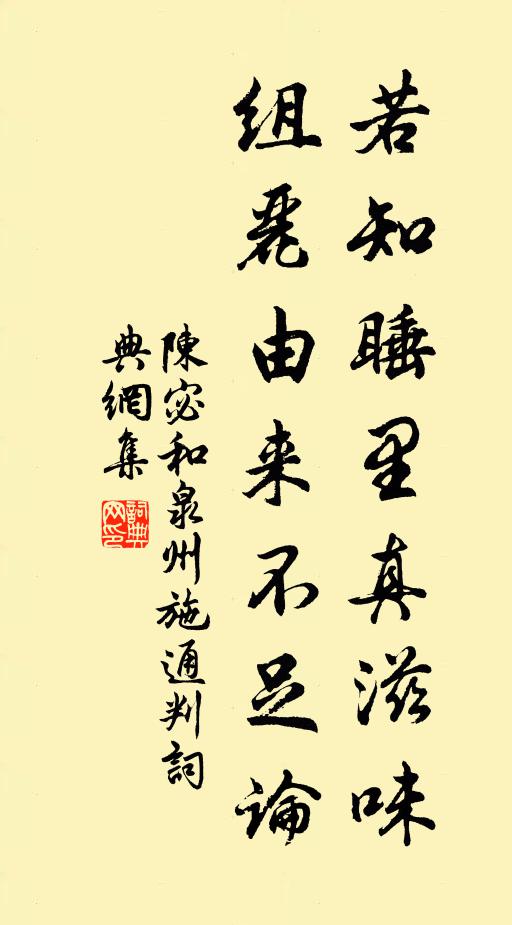 若知睡里真滋味
组麗由来不足論
陳宓和泉州施通判詞
典網集
詞典网印